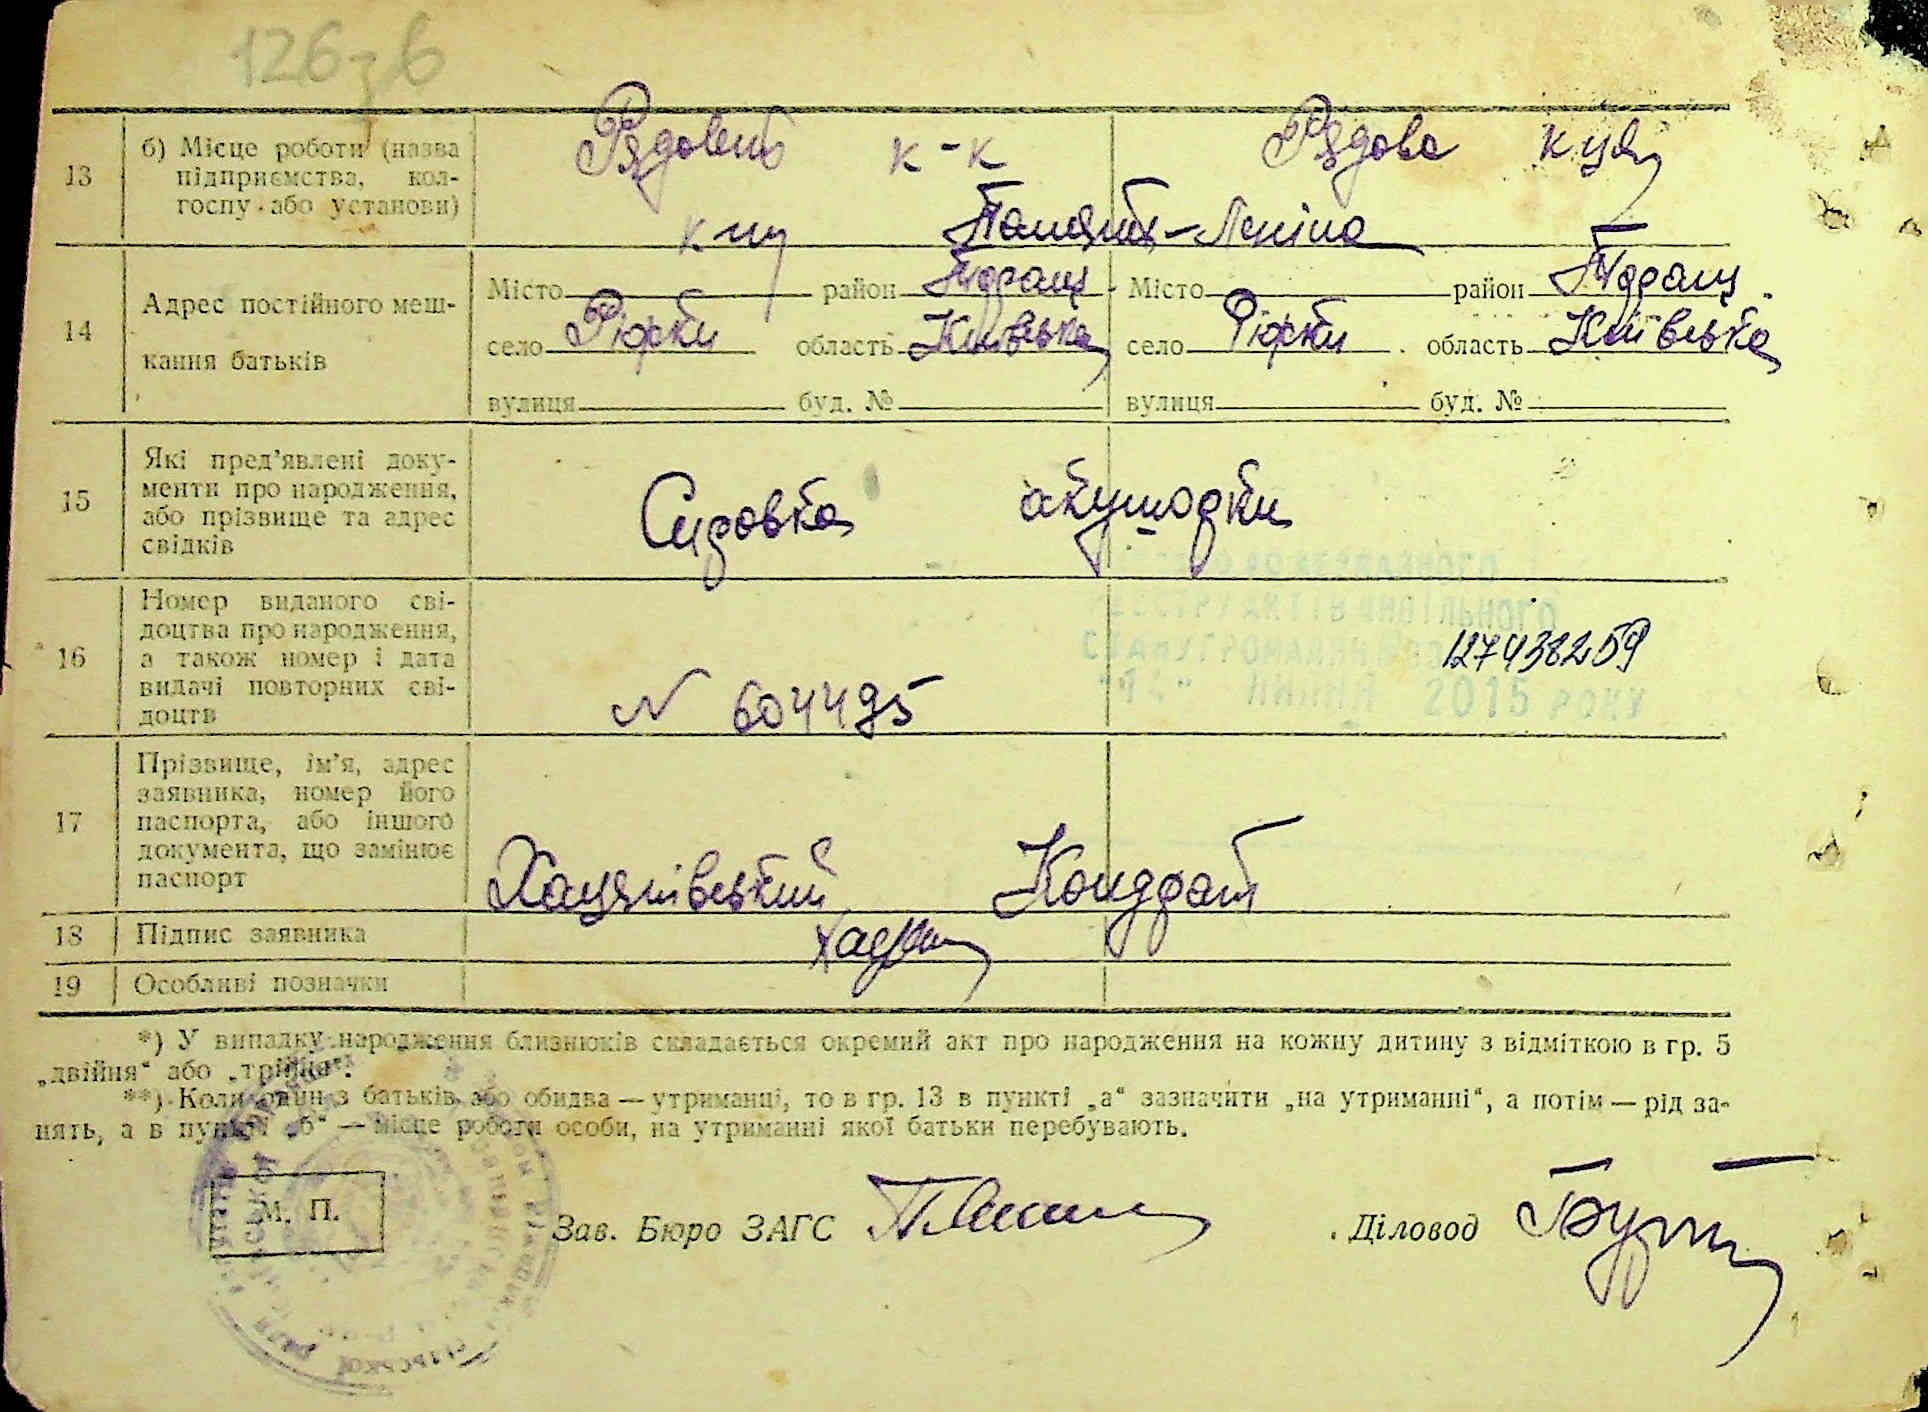 126зв
13
б) Місце роботи (назва
підприємства, кол-
госпу або установи)
Рядовий к-к
Рядова
Памʼять-Леніна
14
Адрес постійного меш-
кання батьків
Місто район
село Рюжки область Київська
вулиця буд. №
Місто район
село Рюжки область Київська
вулиця буд. №
15
Які пред’явлені доку-
менти про народження,
або прізвище та адрес
свідків
акушорки
16
Номер виданого сві-
доцтва про народження,
а також номер і дата
видачі повторних сві-
доцтв
N 604495
127438259
2015 РОКУ
17
Прізвище, ім’я, адрес
заявника, номер його
паспорта, або іншого
документа, що замінює
паспорт
Хацянівський Кондрат
18
Підпис заявника
19
Особливі позначки
*) У випадку народження близнюків складається окремий акт про народження на кожну дитину з відміткою в гр. 5
„двійня“ або „трійня“.
**) Коли один з батьків або обидва — утриманці, то в гр. 13 в пункті „а“ зазначити „на утриманні“, а потім — рід за-
нять, а в пункті „б“ — місце роботи особи, на утриманні якої батьки перебувають.
М. П.
Зав. Бюро ЗАГС
Діловод